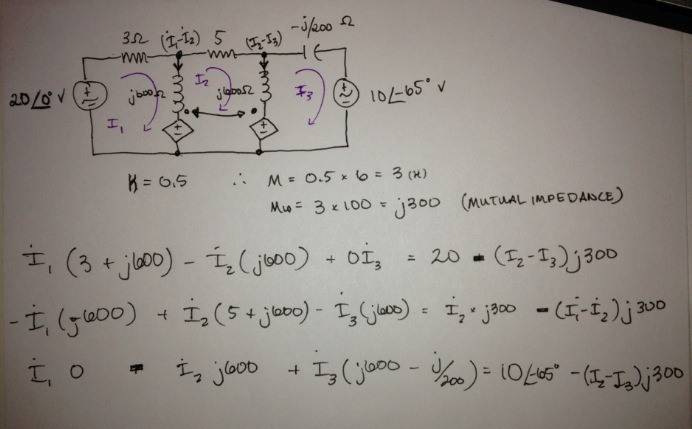 3Ω (İ₁-İ₂) 5 (I₂-I₃) -j/200 Ω
20∠0° V I₁ j600Ω I₂ j600Ω I₃ 10∠-65° V
K = 0.5 ∴ M = 0.5 × 6 = 3 (H)
Mω = 3 × 100 = j300 (MUTUAL IMPEDANCE)
İ₁ (3 + j600) - İ₂ (j600) + 0İ₃ = 20 - (I₂-I₃)j300
-İ₁ (j600) + İ₂ (5 + j600) - İ₃ (j600) = İ₂ × j300 - (İ₁-İ₂) j300
İ₁ 0 - İ₂ j600 + İ₃ (j600 - j/200) = 10∠-65° - (I₂-I₃) j300